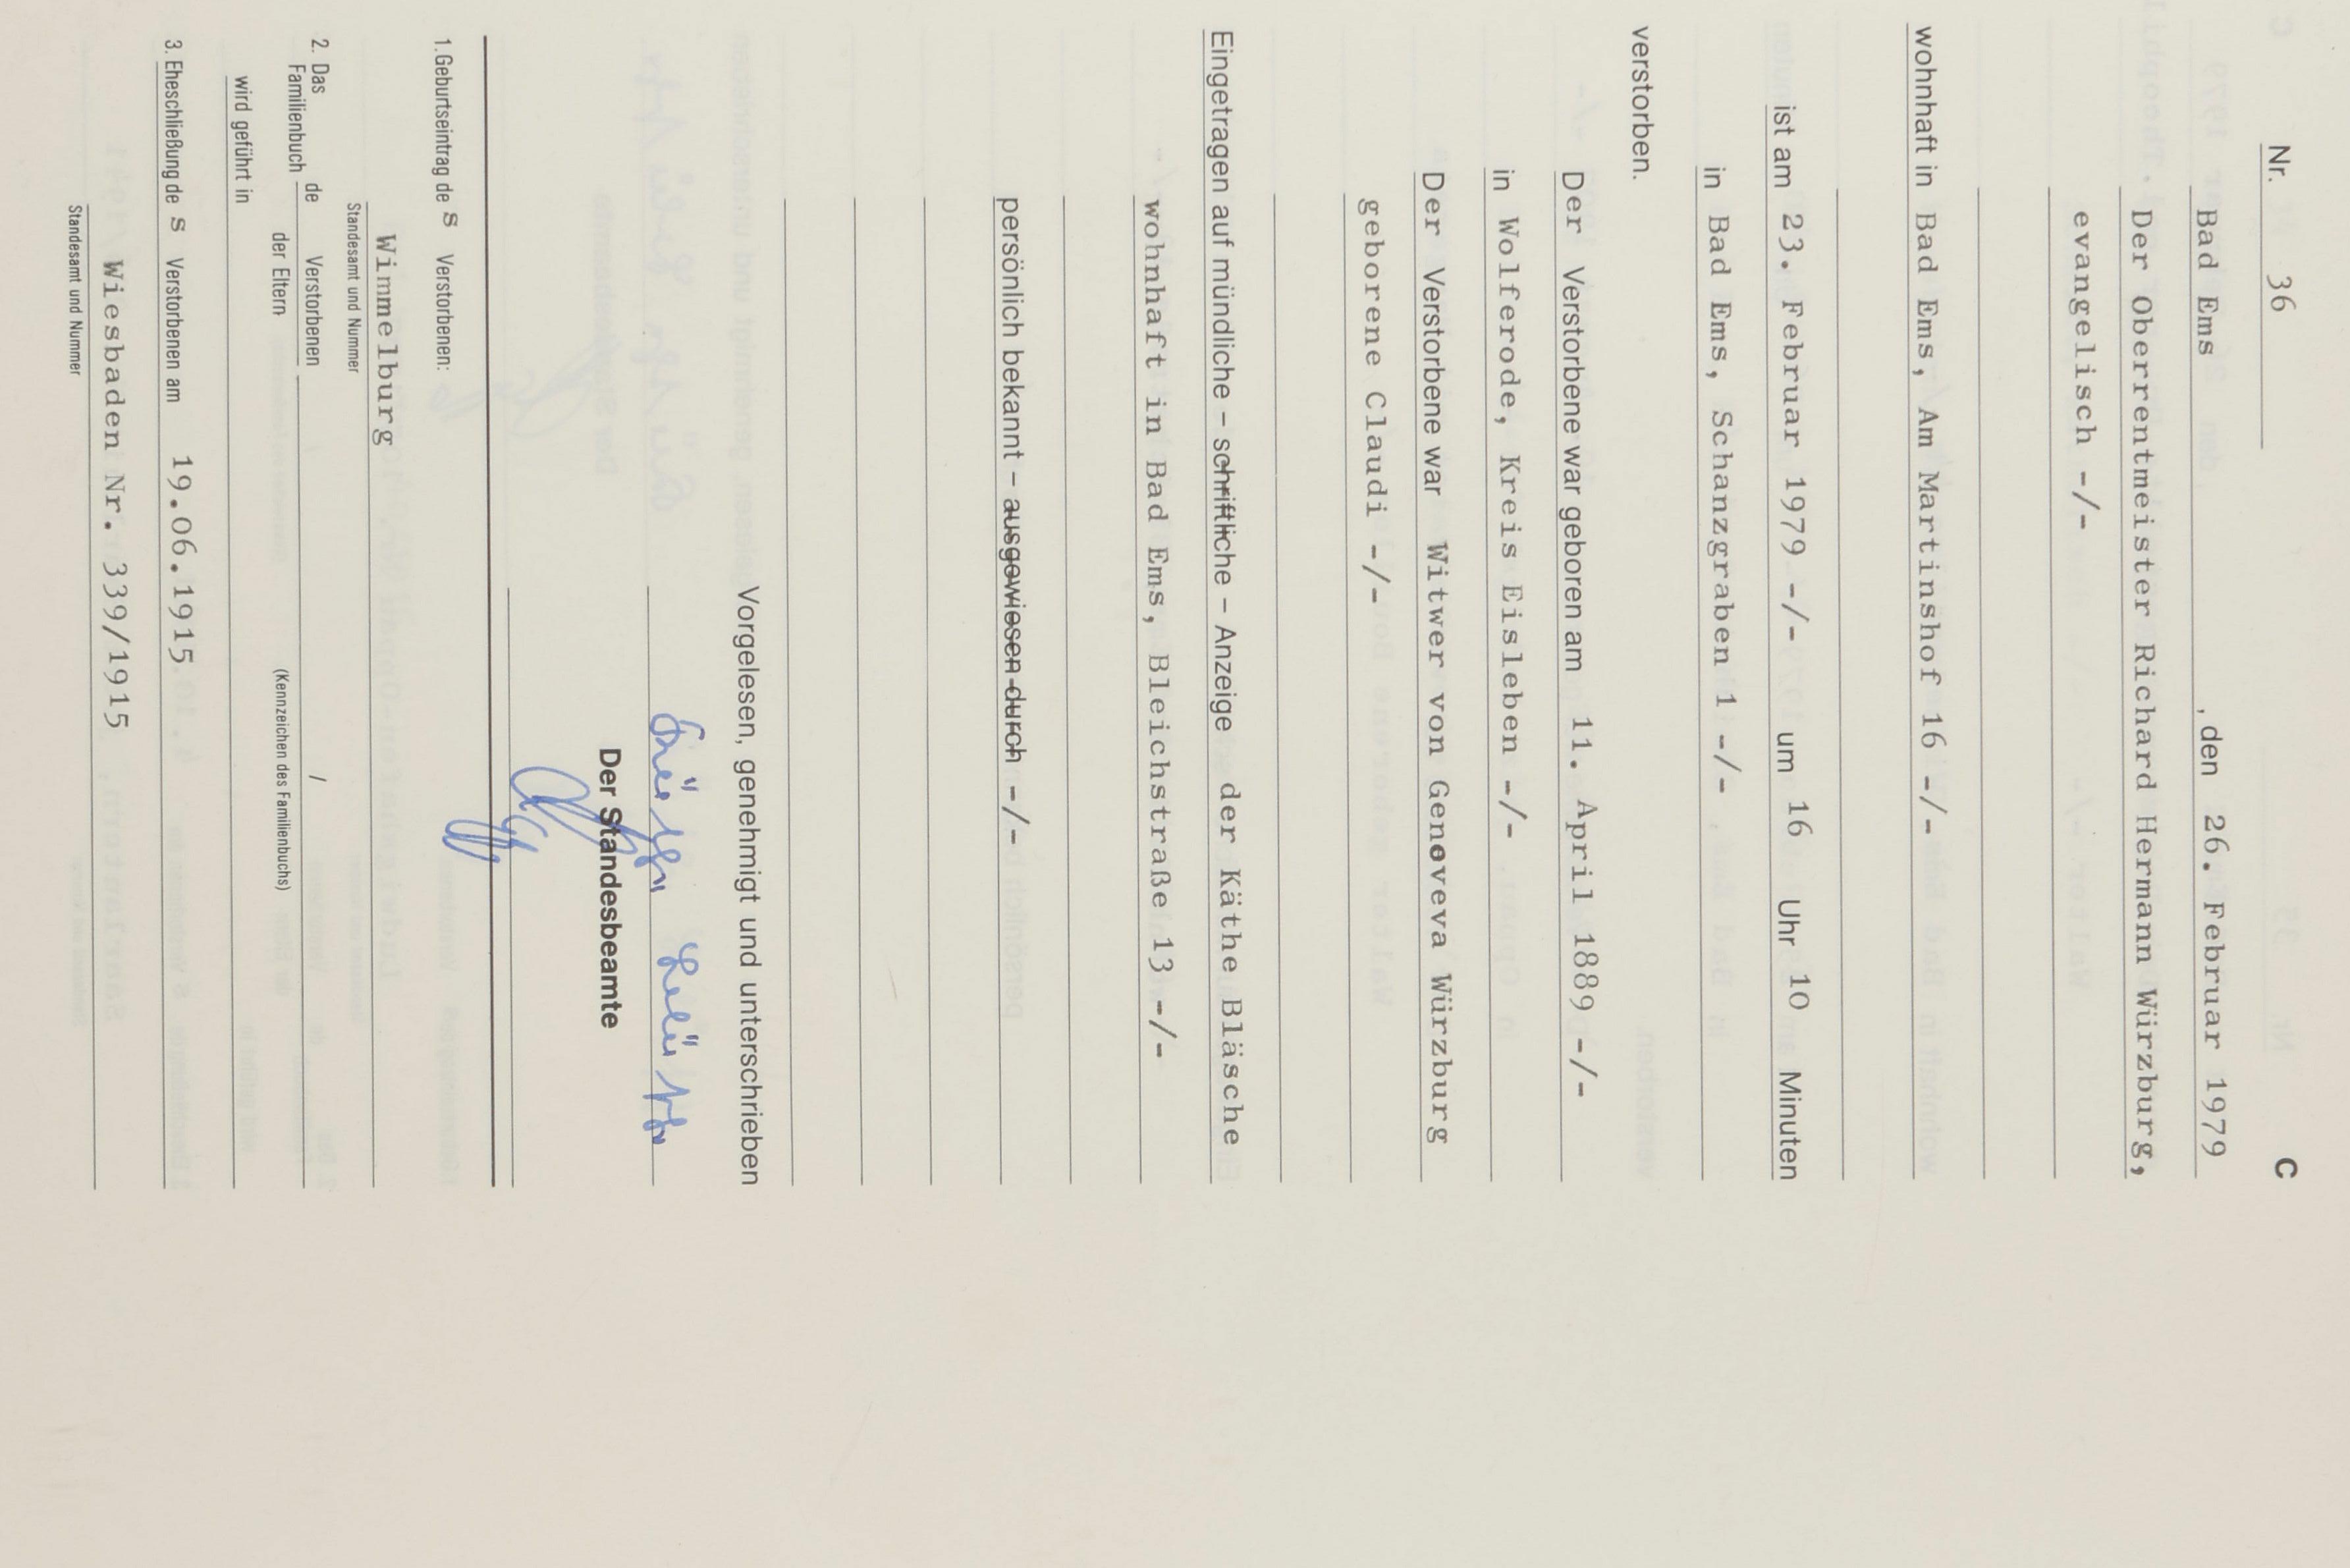 Nr. 36 C
Bad Ems, den 26. Februar 1979
Der Oberrentmeister Richard Hermann Würzburg,
evangelisch -/-
wohnhaft in Bad Ems, Am Martinshof 16 -/-
ist am 23. Februar 1979 -/- um 16 Uhr 10 Minuten
in Bad Ems, Schanzgraben 1 -/-
verstorben.
Der Verstorbene war geboren am 11. April 1889 -/-
in Wolferode, Kreis Eisleben -/-
Der Verstorbene war Witwer von Genoveva Würzburg
geborene Claudi -/-
Eingetragen auf mündliche – schriftliche – Anzeige der Käthe Bläsche
wohnhaft in Bad Ems, Bleichstraße 13 -/-
persönlich bekannt – ausgewiesen durch -/-
Vorgelesen, genehmigt und unterschrieben
Der Standesbeamte
1. Geburtseintrag des Verstorbenen:
Wimmelburg
Standesamt und Nummer
2. Das Familienbuch de Verstorbenen der Eltern /
(Kennzeichen des Familienbuchs)
wird geführt in
3. Eheschließung des Verstorbenen am 19.06.1915
Wiesbaden Nr. 339/1915
Standesamt und Nummer